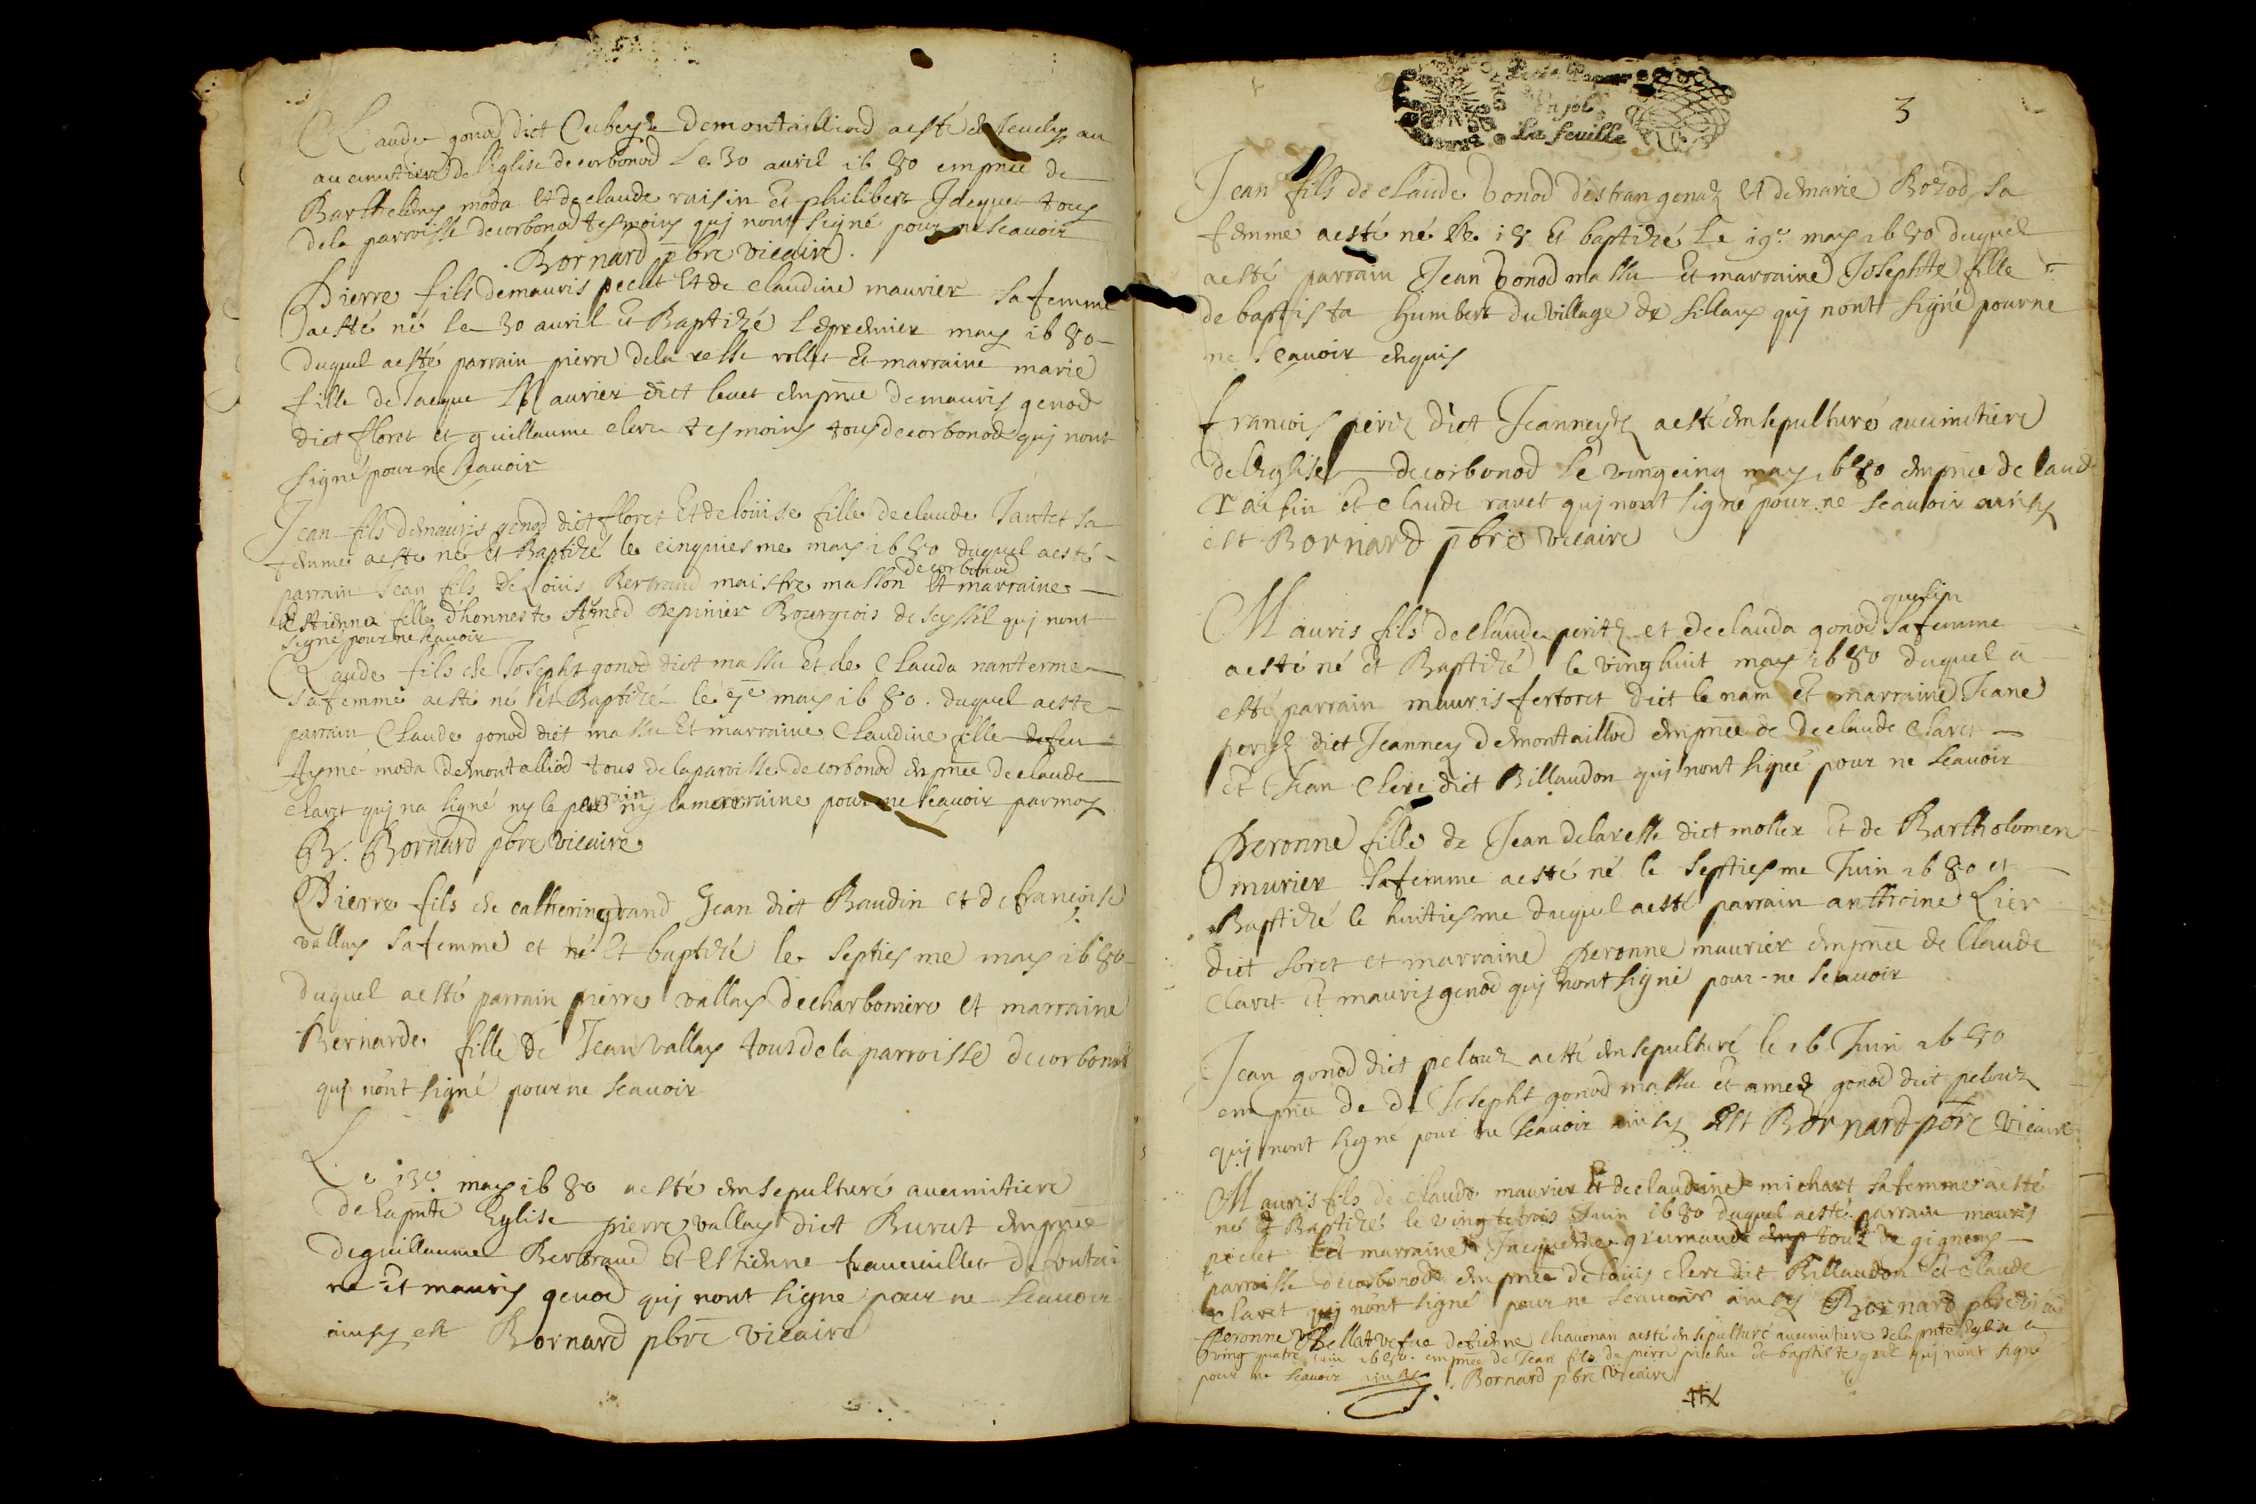 Claude gonod dict Cubeyr demontailliod aesté ensevely au
au cimitiere del'Eglise decorbonod Le 30 avril 1680 empnce de
Barthelemy moda Et declaude raisin Et philibert Jdequet tous
dela parroisse decorbonod tesmoins quj nont signé pour ne scavoir
Bornard pbre vicaire.
Pierre fils demauris peclet Et de Claudine maurier sa femme
aesté né le 30 avril Et Baptizé Lepremier may 1680
duquel aesté parrain pierre delavelle rollet Et marraine marie
fille de Jacque Maurier dict levet empnce demauris genod
dict floret et guillaume clerc tesmoins tous decorbonod quj nont
signé pour ne scavoir
Jean fils demauris gonod dict floret Et delouise fille declaude Jantet sa
femme aesté né Et Baptizé le cinquiesme may 1680 duquel aesté
decorbonod
parrain Jean fils De Louis Bertrand maistre masson Et marraine
Estienna fille d'honneste Aymod Depinier Bourgeois de seyssel quj nont
signé pour ne scavoir
Claude fils de Josepht gonod dict massu Et de Clauda nanterme
sa femme aesté né Et Baptizé le 7e may 1680. duquel aesté
parrain Claude gonod dict massu Et marraine Claudine fille defeu
Aymé moda demontalliod tous de laparoisse decorbonod empnce declaude
Claret quj na signé ny le parrain ny lamarraine pour ne scavoir parmoy
Br. Bornard pbre vicaire
Pierre fils de catherin grand Jean dict Baudin et de françoise
vallay sa femme et né Et baptizé le septiesme may 1680
duquel aesté parrain pierre vallay decharboniere Et marraine
Bernarde fille de Jean vallay tous de la parroisse decorbonod
quj nont signé pour ne scavoir
Le 13e may 1680 aesté ensepulturé aucimitiere
de lapnte Eglise pierre vallay dict Burut empnce
deguillaume Bertrand Et Estienne françuillet defontai
ne Et mauris genod quj nont signe pour ne scavoir
ainsy est Bornard pbre vicaire
La feuille
3
Jean fils de Claude bonod destrangenaz Et de marie Bozod sa
femme aesté né le 18 Et baptizé le 19e may 1680 duquel
aesté parrain Jean bonod massu Et marraine Josephte fille
de baptista humbert du village de sillans quj nont signé pour ne
ne scavoir enquis
francois periz dict Jeanneytz aesté ensepulturé aucimitiere
del'Eglise decorbonod le vingcinq may 1680 empnce de laude
raisin et Claude ravet quj nont signé pour ne scavoir ainsy
est Bornard pbre vicaire
quesin
Mauris fils declaude peritz et declauda gonod sa femme
aesté né Et Baptizé le vinghuit may 1680 duquel a
esté parrain mauris fertoret dict le nam Et marraine Jeane
peryz dict Jeanney demontailliod empnce de declaude Claret
Et Jean Clerc dict Billaudon quj nont signéé pour ne scavoir
Peronne fille de Jean delavelle dict mollex Et de Bartholomen
murier sa femme aesté né le septiesme Juin 1680 et
Baptizé le huitiesme duquel aesté parrain anthoine Lier
dict soret et marraine peronne maurier empnce de Claude
Claret Et mauris genod quj nont signé pour ne scavoir
Jean gonod dict pelouz aesté ensepulturé le 16 Juin 1680
empnce de de Josepht gonod massu Et amed gonod dict pelouz
quj nont signé pour ne scavoir ainsy Est Bornard pbre vicaire
Mauris fils de Claude maurier Et declaudine michart sa femme aesté
né Et Baptizé le vingtetrois Juin 1680 duquel aesté parrain mauris
peclet Et marraine Jacqueme grumaud tous de gigney
parroisse decorbonod empnce delouis clerc dit Billaudon Et Claude
Claret quj nont signé pour ne scavoir ainsy Bornard pbre vicai
Peronne vefue destienne Chavonan aesté ensepulturé aucimitiere dela pnte Eglise le
ving quatre Juin 1680 empnce de Jean fils de pierre pichu Et baptiste quj nont signé
pour ne scavoir ainsy Bornard pbre vicaire